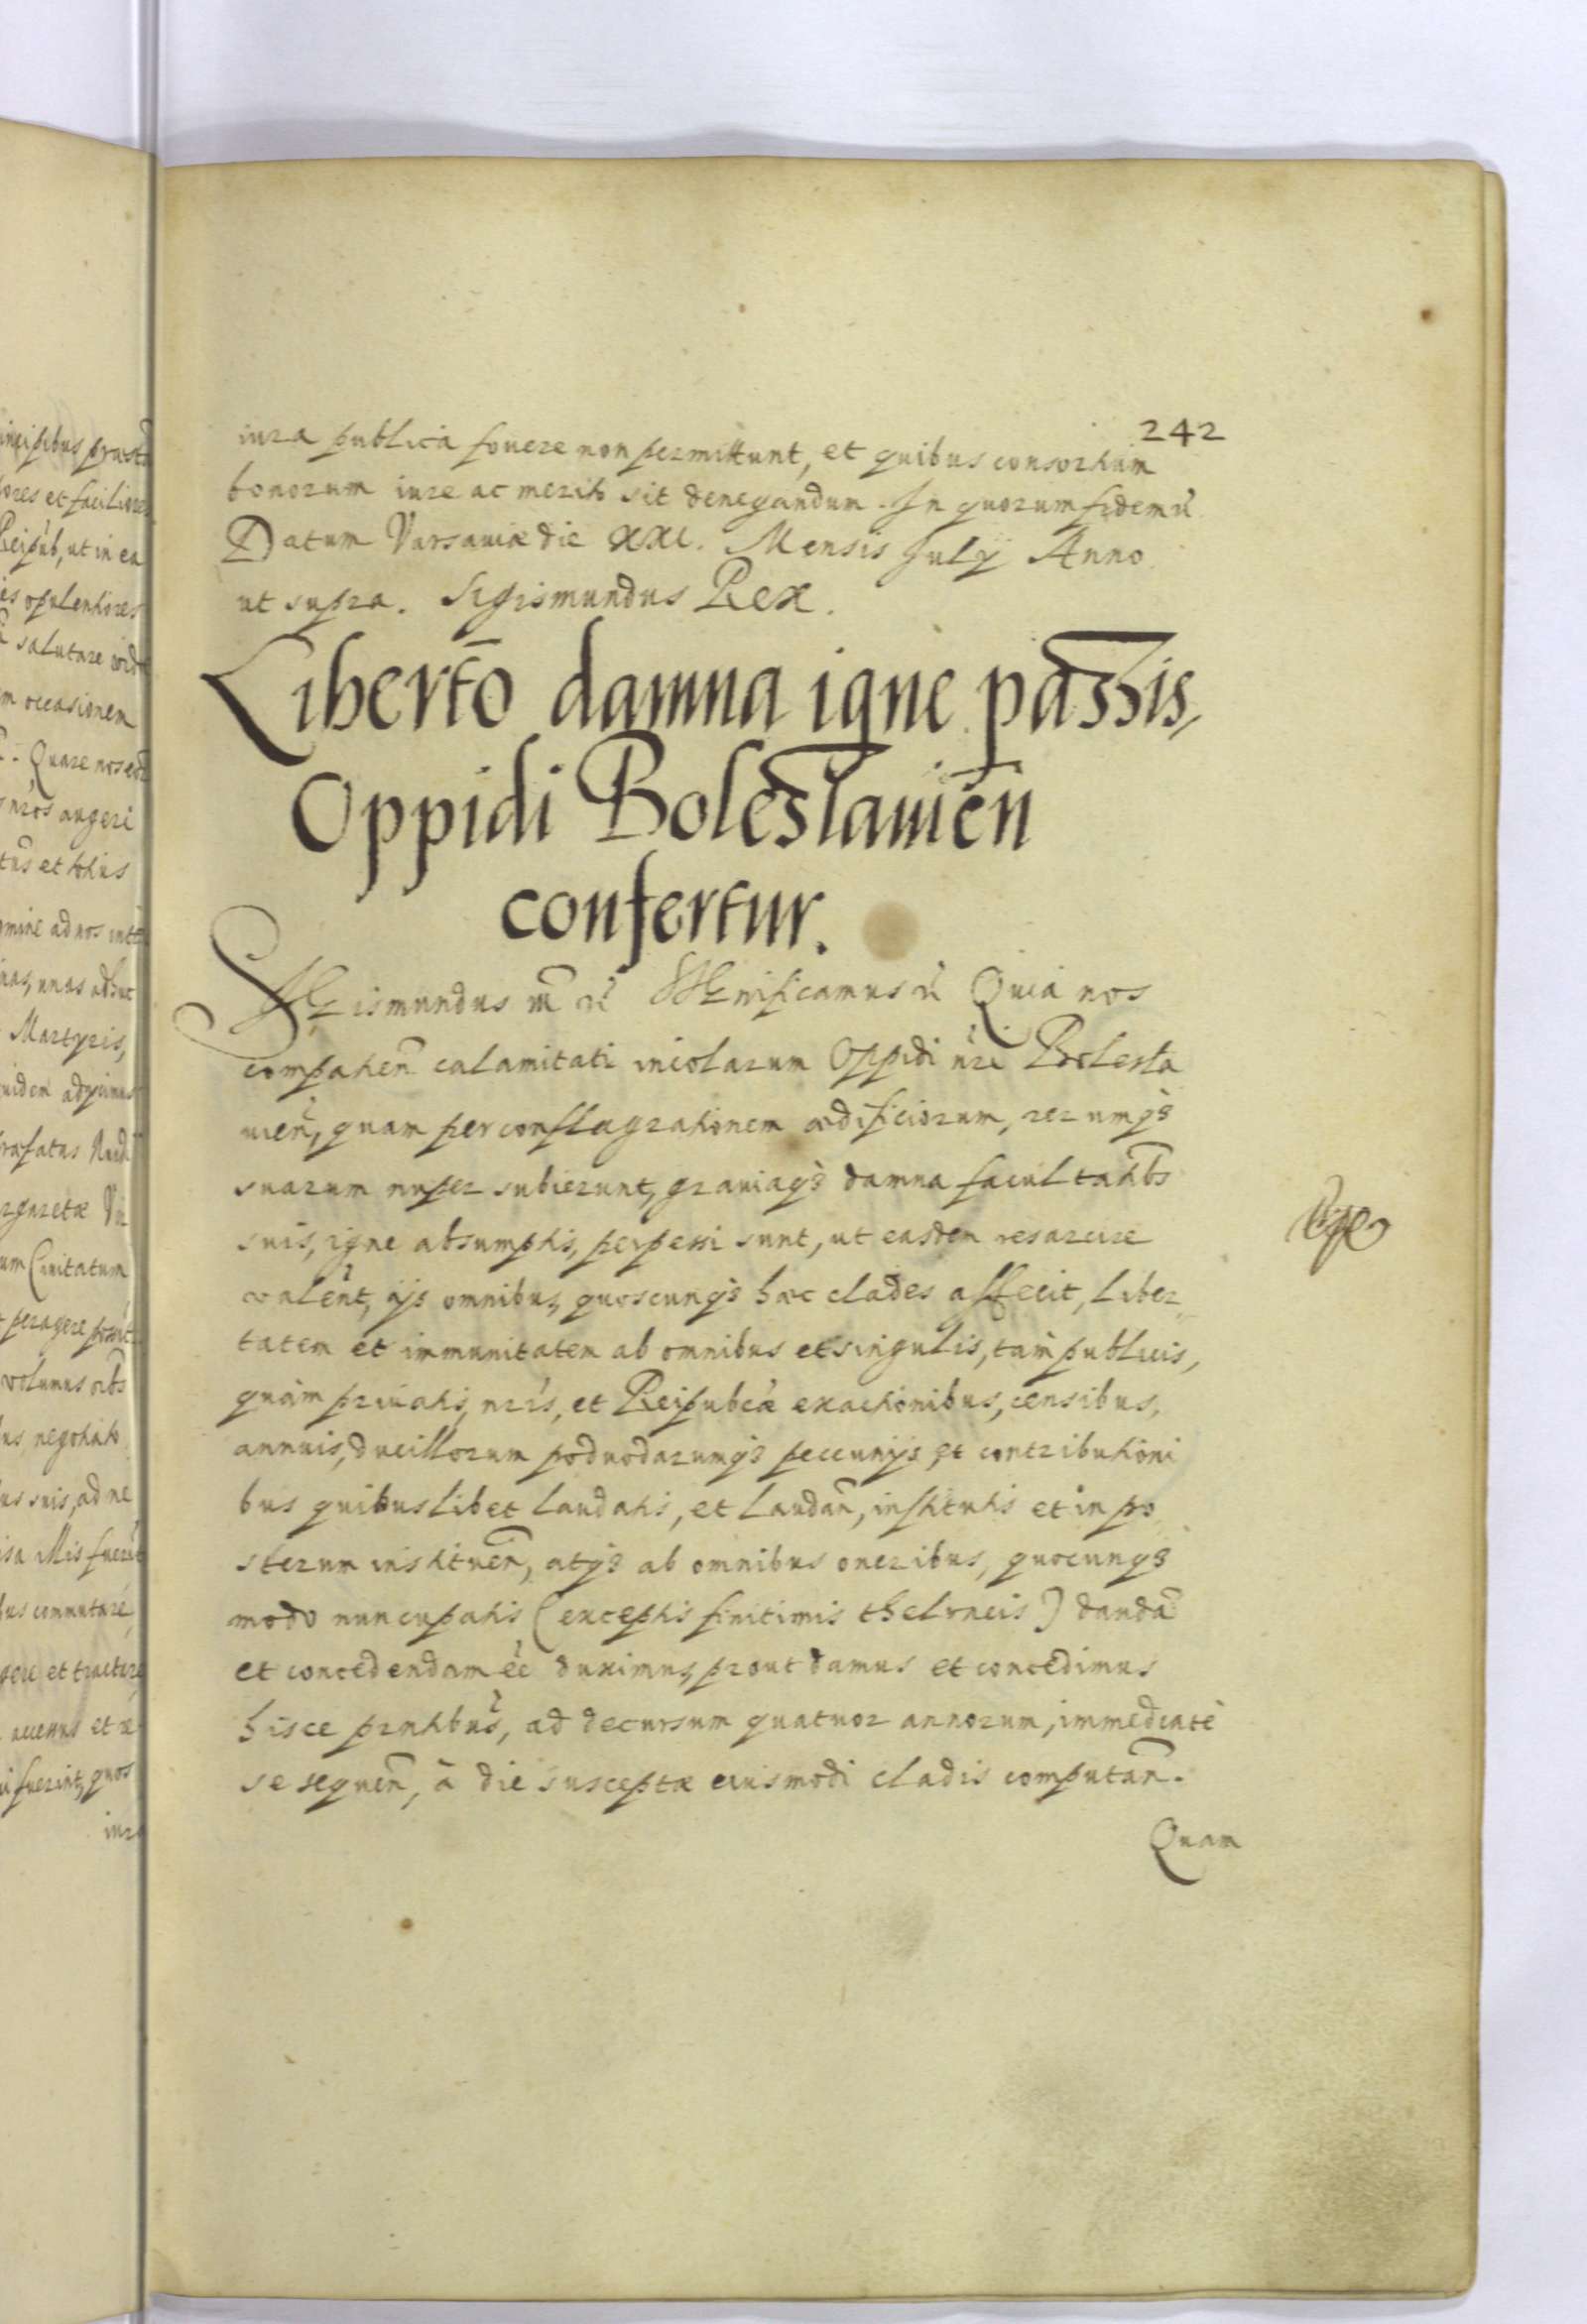 242
iura publica fovere non permittunt, et quibus consortium
bonorum iure ac merito sit denegandum. In quorum fidem etc̃
Datum Varsaviæ die XXI. Mensis Julÿ Anno
ut supra. Sigismundus Rex.
Libert̃o damna igne passis,
Oppidi Boleslauien̄
confertur.
Sigismundus III etc̃ Significamus etc̃ Quia nos
compatien̄ calamitati incolarum Oppidi nr̃i Bolesla
uien̄, quam per conflagrationem ædificiorum, rerumq3
suarum nuper subierunt, graviaq3 damna facultatib9
suis, igne absumptis, perpessi sunt, ut easdem resarcire
valeñt, ijs omnibus, quoscunq3 hæc clades affecit, liber
tatem et immunitatem ab omnibus et singulis, tàm publicis,
quàm privatis, nr̃is, et Reipubcæ exactionibus, censibus,
annuis, ducillorum podvodarumq3 peccunijs et contributioni
bus quibuslibet laudatis, et laudan̄, institutis et in po
sterum instituen̄, atq3 ab omnibus oneribus, quocunq3
modo nuncupatis (exceptis finitimis theloneis) dandã
et concedendam eẽ duximus, prout damus et concedimus
hisce pr̃ntibus, ad decursum quatuor annorum, immediatè
se sequen̄, à die susceptæ eiusmodi cladis computan̄.
Quam
incipibus
ores et faciliore
Reipub, ut in ea
es opulentiores
salutare
m occasionem
Quare nos
nr̃os augeri
et totius
mine ad nos
nas, unas adhuc
Martyris,
uidem adijcimus
rgaretæ
um Civitatum
peragere
volumus
us negotiat
us suis, ad ne
commutare
gere et
accessus et re
fuerint, quos
iura